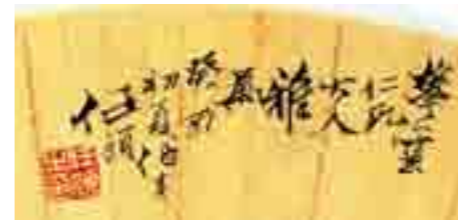 雲
仁兄
大人
雅
屬
癸
初夏伯年
任頤